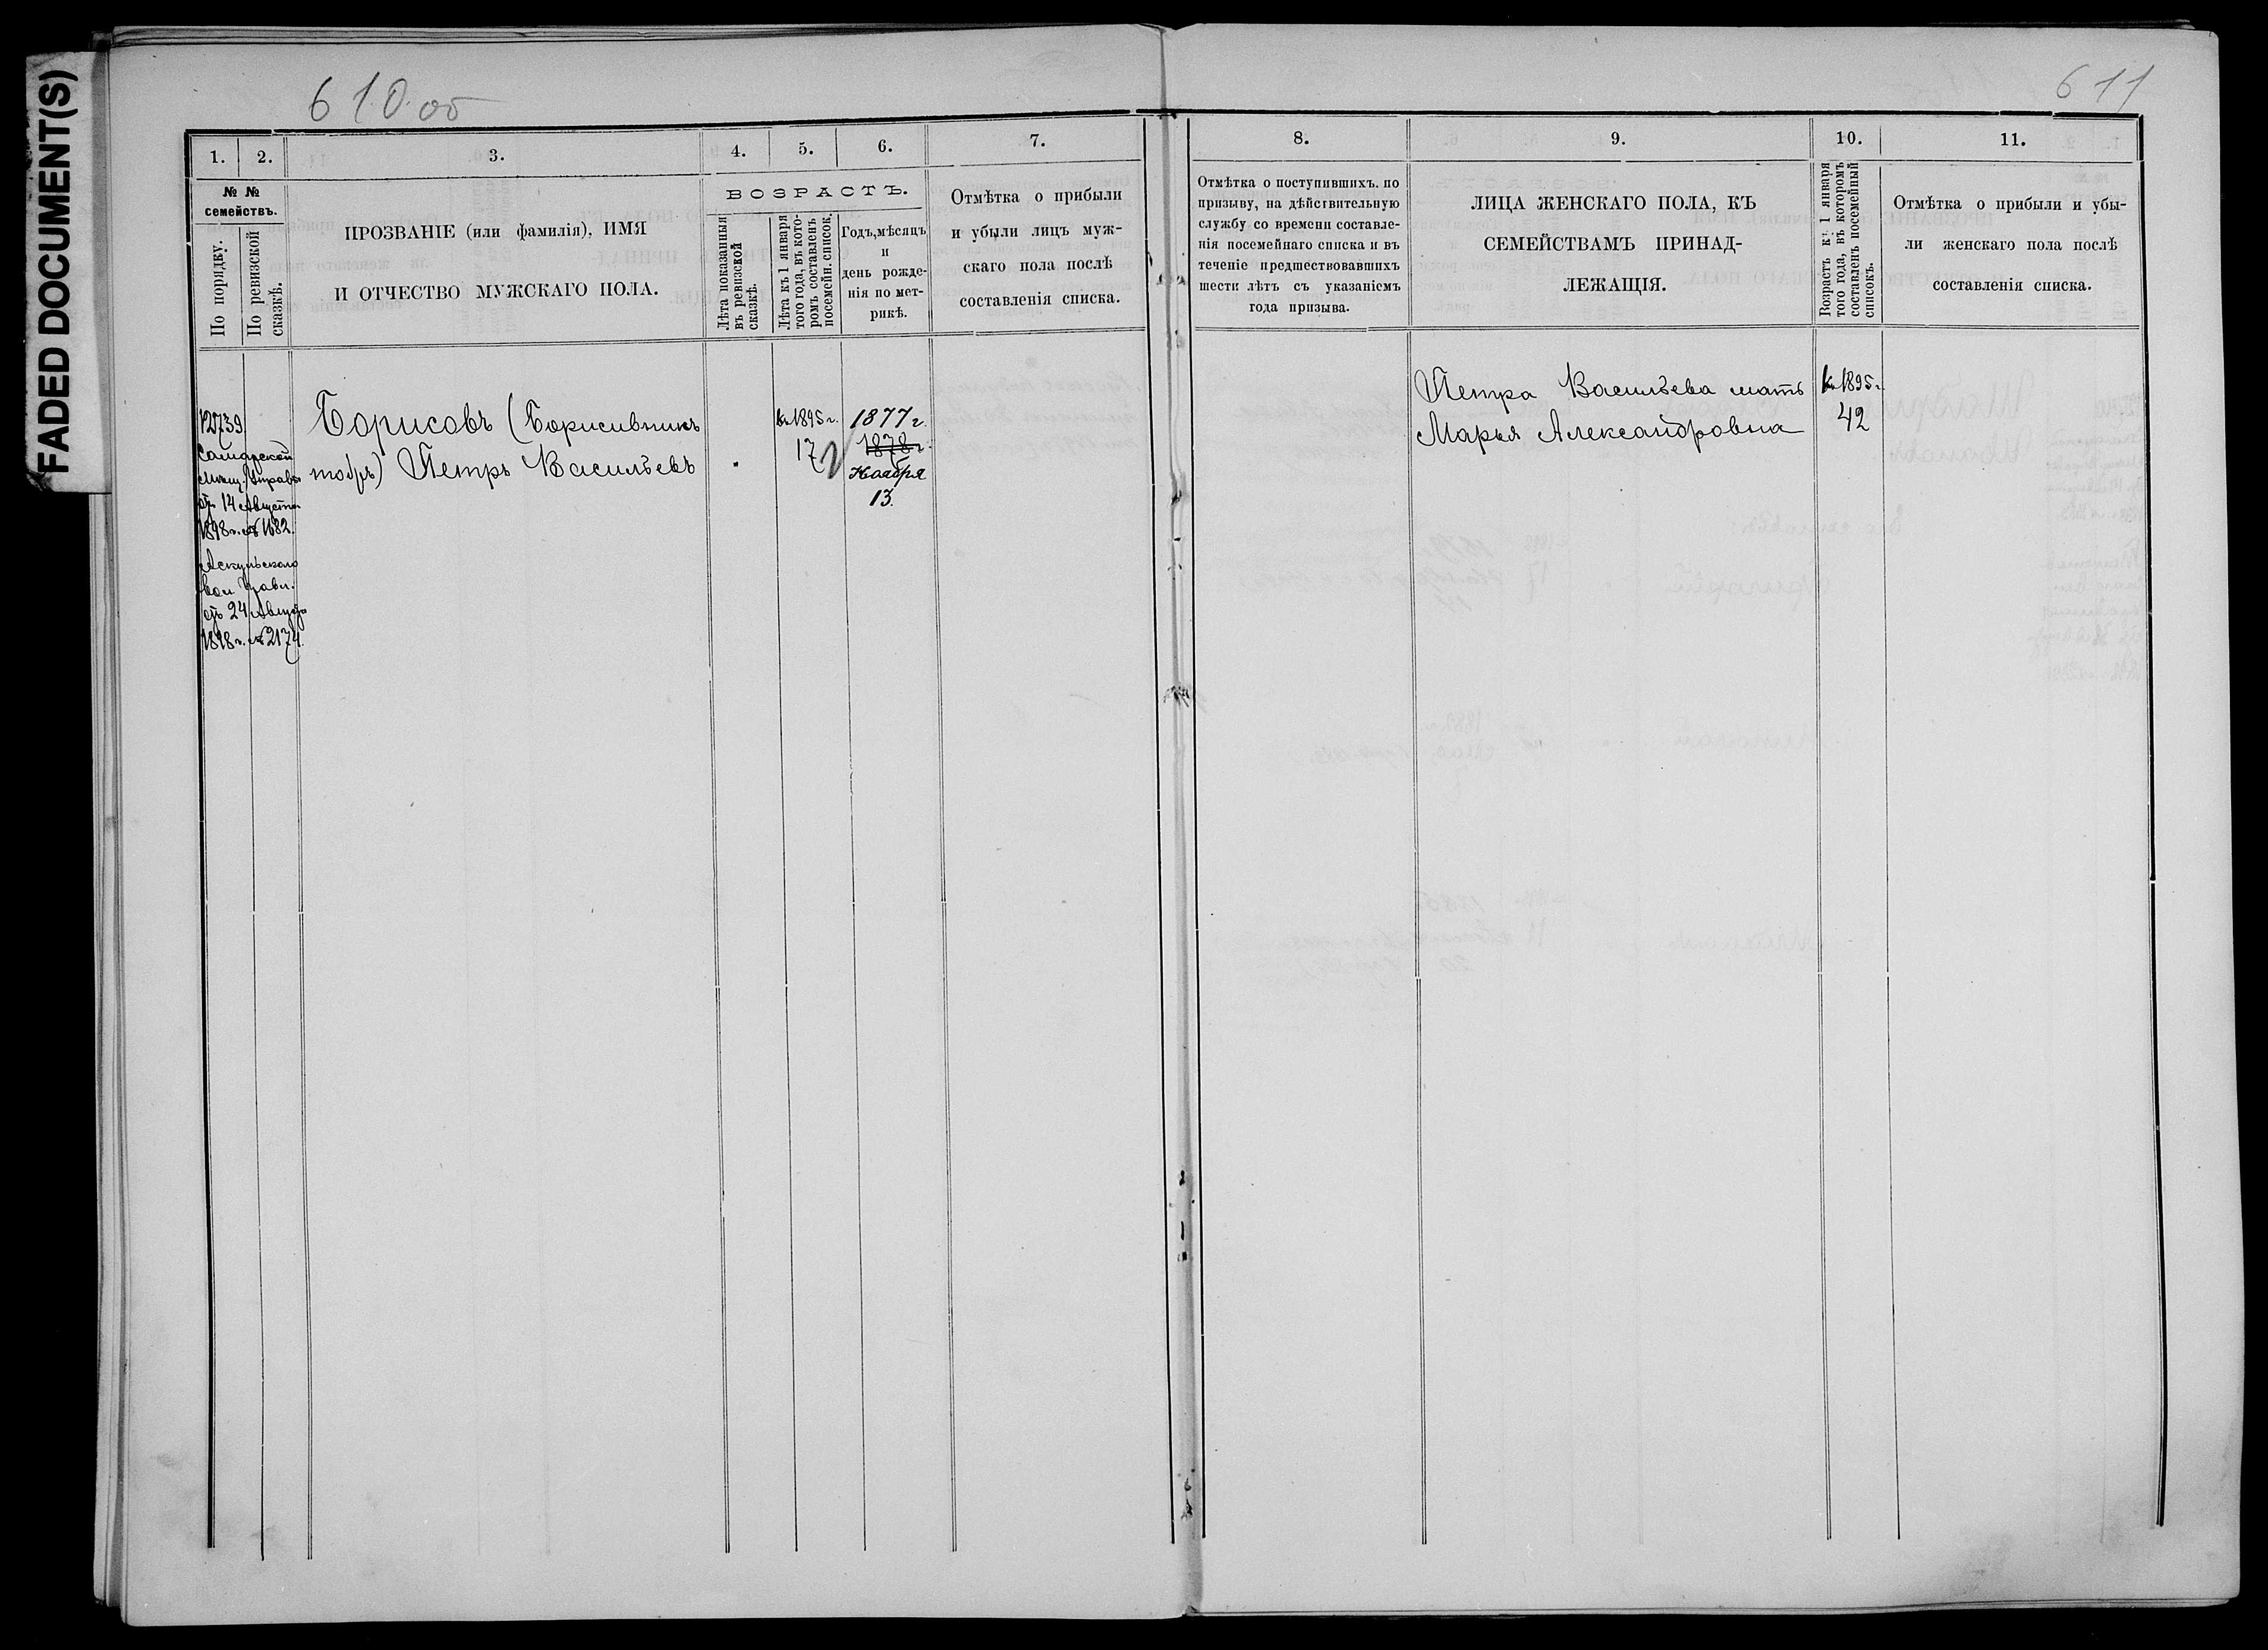 FADED DOCUMENT(S)
610 об
611
1.
2.
3.
4.
5.
6.
7.
№ №
семействъ.
По порядку.
По ревизской
сказкѣ.
ПРОЗВАНІЕ (или фамилія), ИМЯ
И ОТЧЕСТВО МУЖСКАГО ПОЛА.
ВОЗРАСТЪ.
Лѣта показанныя
въ ревизской
сказкѣ.
Лѣта къ 1 января
того года, въ кото-
ромъ составленъ
посемейн. список.
Годъ, мѣсяцъ
и
день рожде-
нія по мет-
рикѣ.
Отмѣтка о прибыли
и убыли лицъ муж-
скаго пола послѣ
составленія списка.
12739
Самарской
Мѣщ. Управы
отъ 14 Августа
1898 г. № 1182.
Аскульского
вол. Правл.
отъ 24 Августа
1898 г. № 2174.
Борисовъ (
) Петръ Васильевъ
къ 1895 г.
17
1877 г.
1878 г.
Ноября
13.
8.
9.
10.
11.
Отмѣтка о поступившихъ. по
призыву, на дѣйствительную
службу со времени составле-
нія посемейнаго списка и въ
теченіе предшествовавшихъ
шести лѣтъ съ указаніемъ
года призыва.
ЛИЦА ЖЕНСКАГО ПОЛА, КЪ
СЕМЕЙСТВАМЪ ПРИНАД-
ЛЕЖАЩІЯ.
Возрастъ къ 1 января
того года, въ которомъ
составленъ посемейный
списокъ.
Отмѣтка о прибыли и убы-
ли женскаго пола послѣ
составленія списка.
Петра Васильева мать
Марья Александровна
къ 1895 г.
42